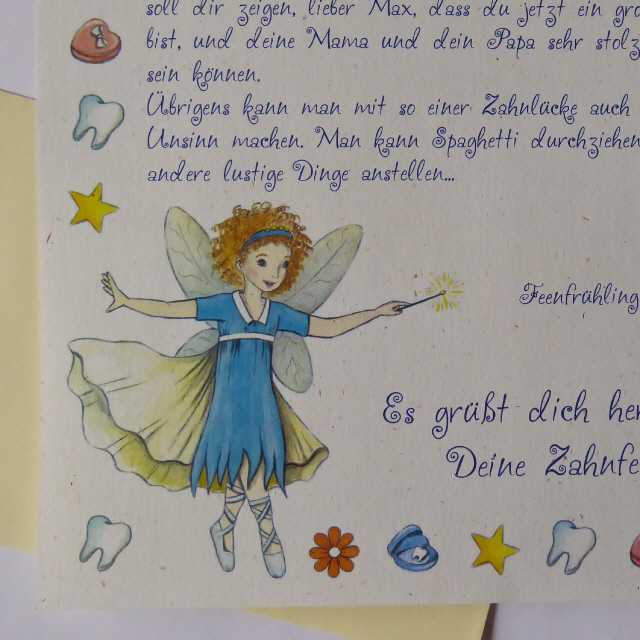 soll dir zeigen, lieber Max, dass du jetzt ein
bist, und deine Mama und dein Papa sehr stolz
sein können.
Übrigens kann man mit so einer Zahnlücke auch
Unsinn machen. Man kann Spaghetti durchziehen
andere lustige Dinge anstellen...
Feenfrühling
Es grüßt dich
Deine